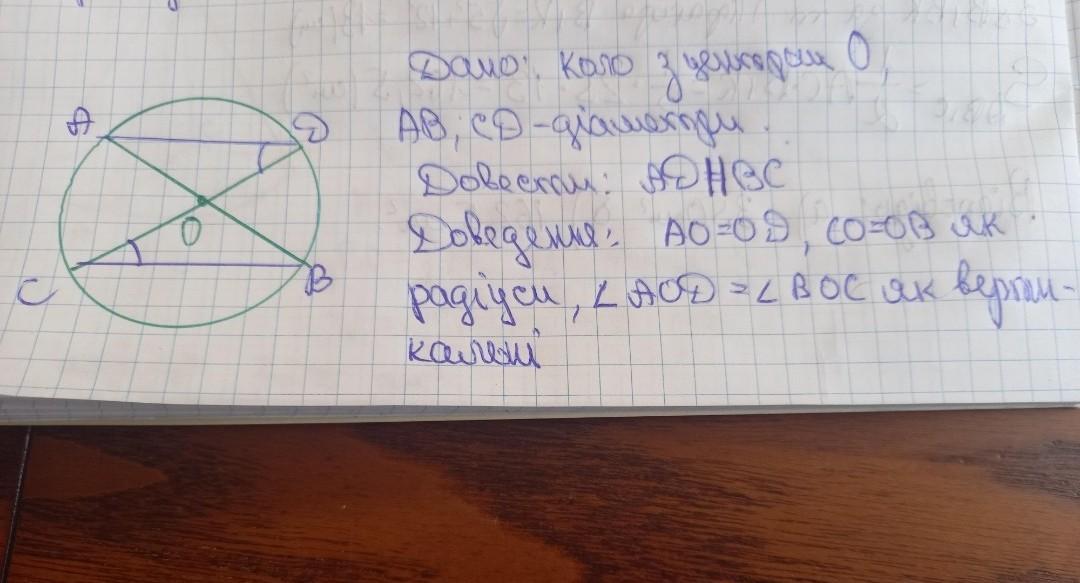 Дано: коло з центром О,
A
D
AB, CD - діаметри.
Довести: AD || BC
O
Доведення: AO=OD, CO=OB як
C
B
радіуси, ∠AOD = ∠BOC як верти-
кальні